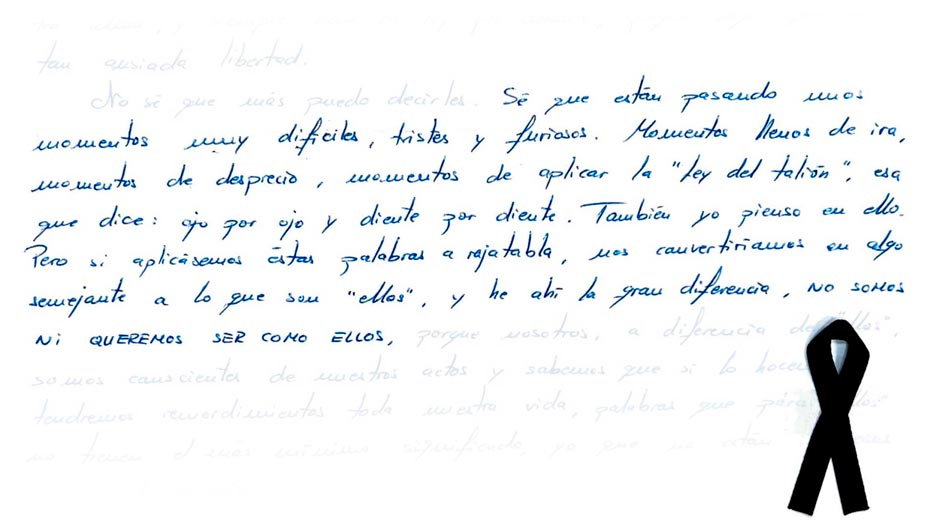 tan ansiada libertad.
No sé que más puedo decirles. Sé que están pasando unos
momentos muy difíciles, tristes y furiosos. Momentos llenos de ira,
momentos de desprecio, momentos de aplicar la "ley del talión", esa
que dice: ojo por ojo y diente por diente. También yo pienso en ello.
Pero si aplicásemos éstas palabras a rajatabla, nos convertiríamos en algo
semejante a lo que son "ellos", y he ahí la gran diferencia, NO SOMOS
NI QUEREMOS SER COMO ELLOS, porque nosotros, a diferencia de "ellos",
somos conscientes de nuestros actos y sabemos que si lo
tendremos remordimientos toda nuestra vida, palabras que para
no tienen el más mínimo significado, ya que no están